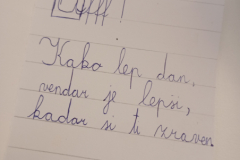 Kako lep dan,
vendar je lepši,
kadar si ti zraven